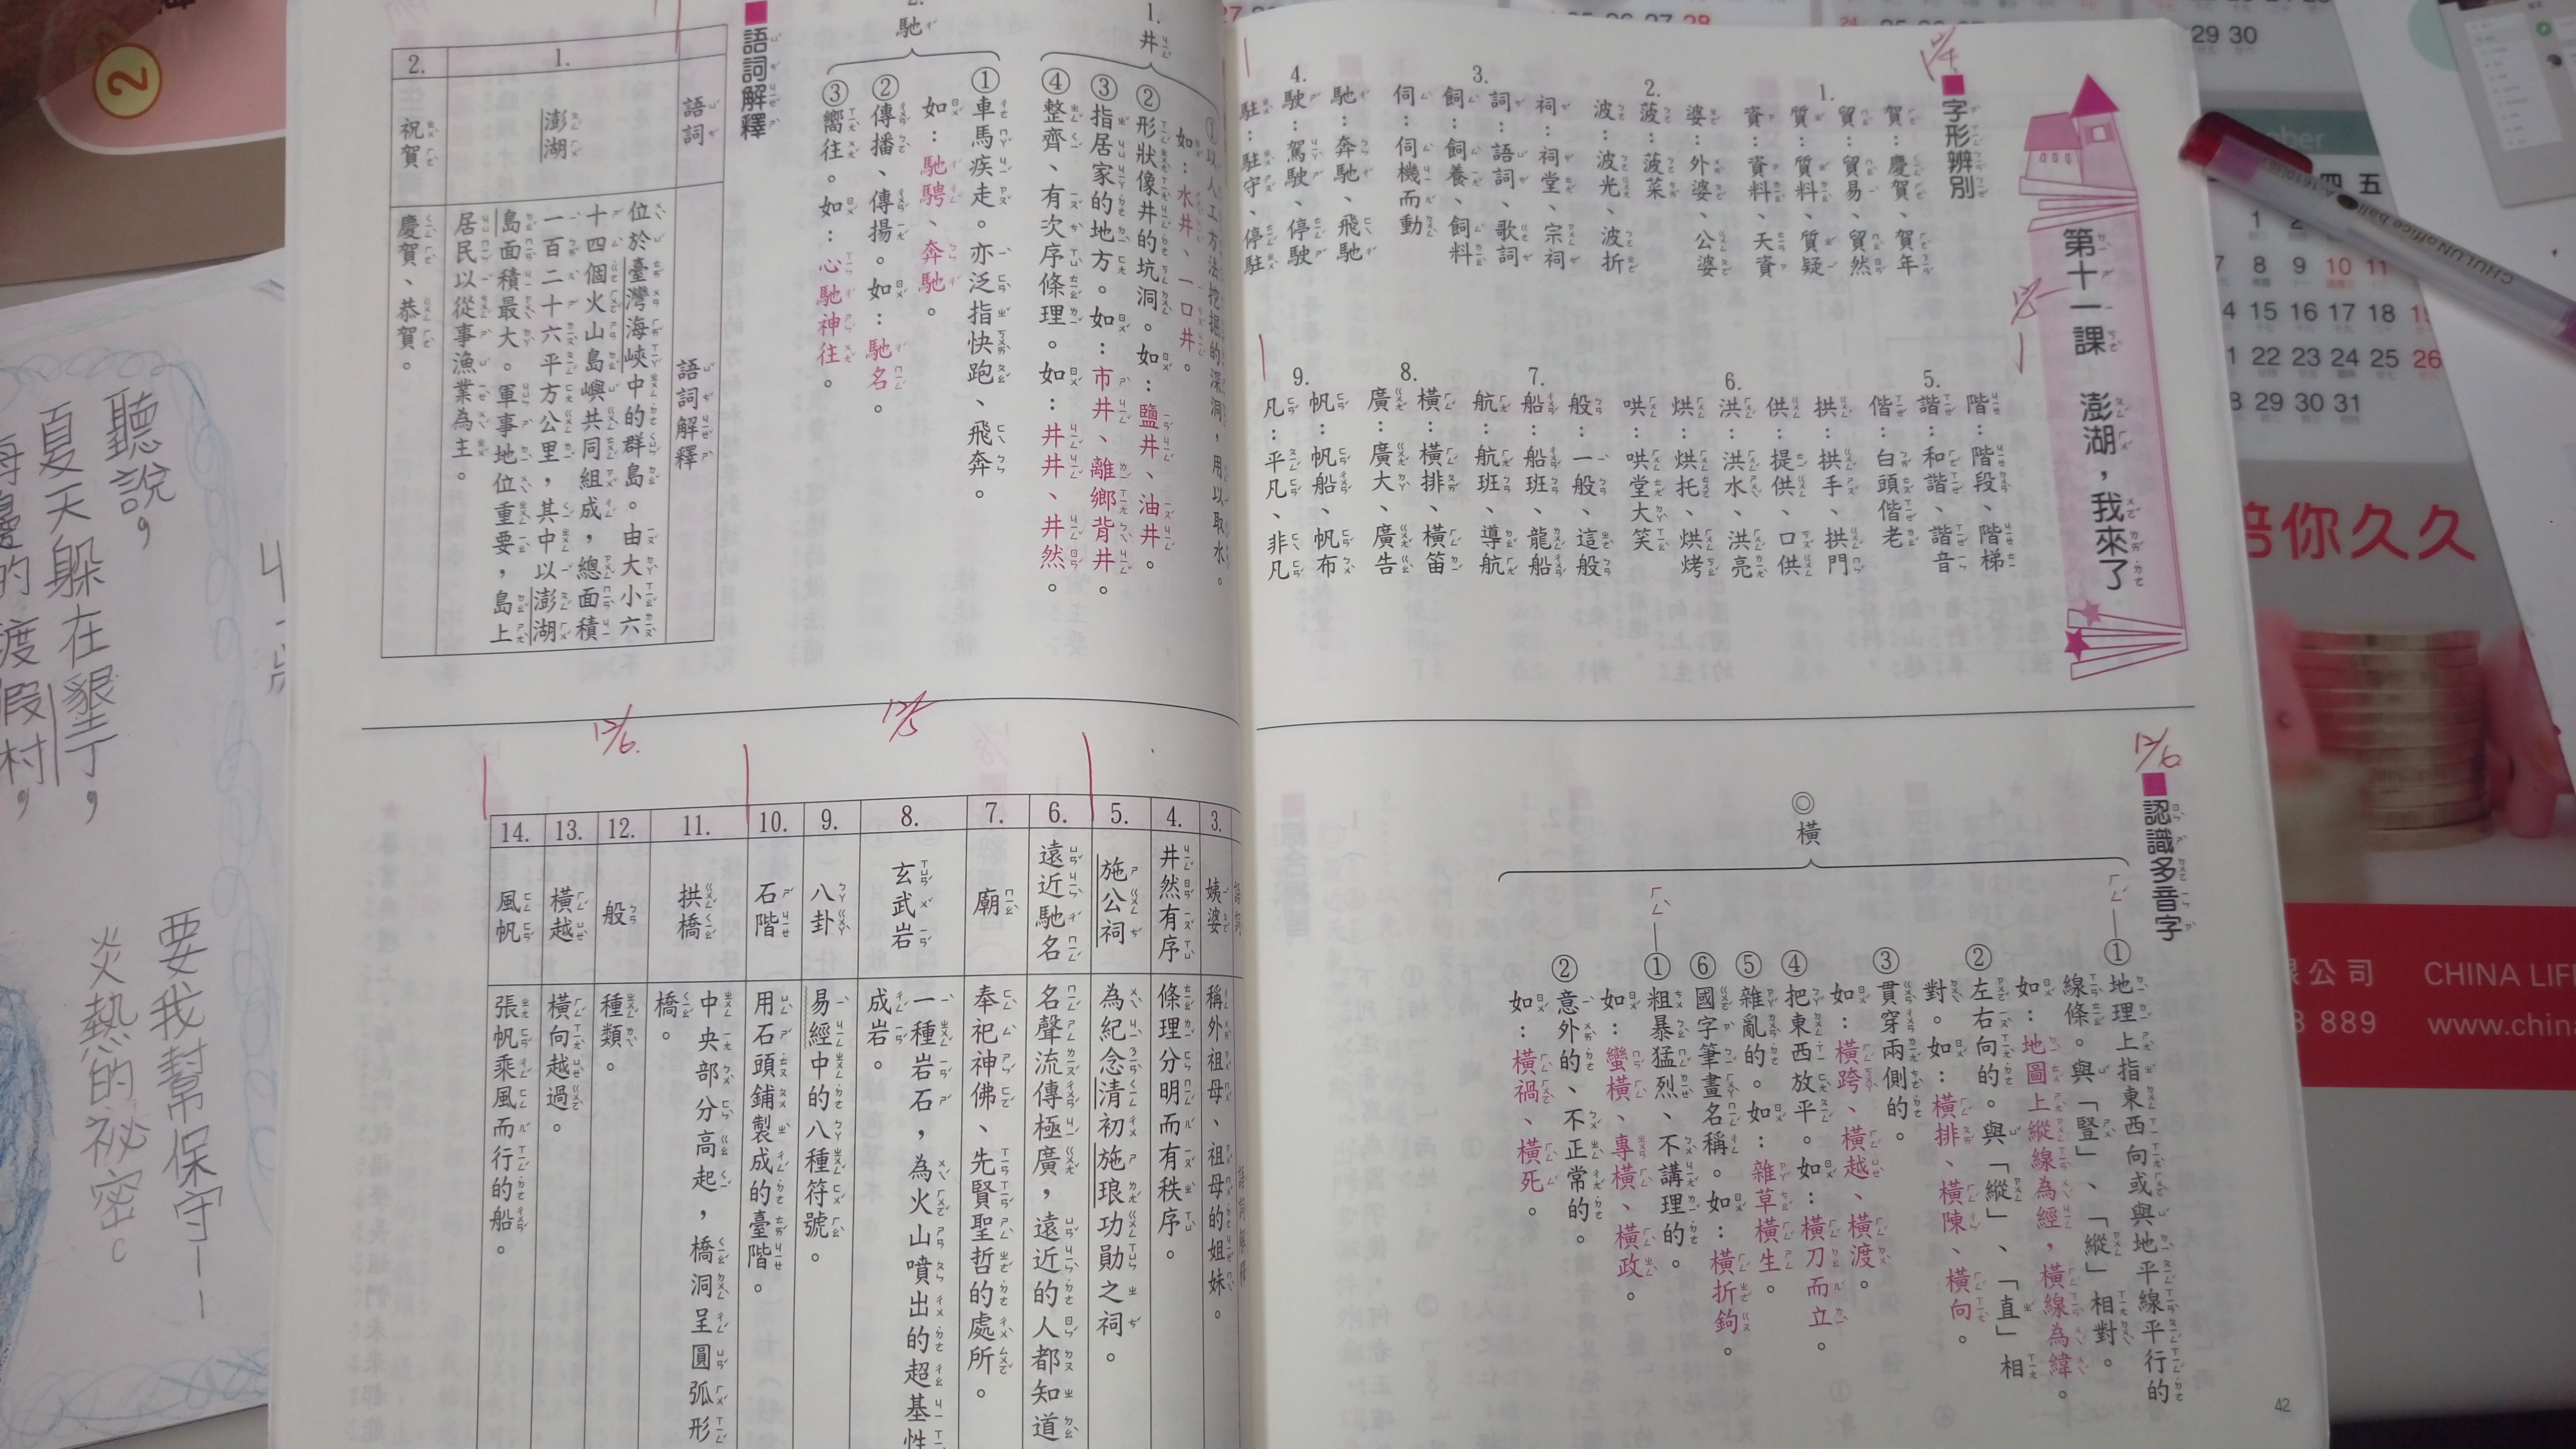 第十一課 澎湖，我來了
12/4
字形辨別
1.
賀：慶賀、賀年
貿：貿易、貿然
質：質料、質疑
資：資料、天資
2.
婆：外婆、公婆
菠：菠菜
波：波光、波折
3.
祠：祠堂、宗祠
詞：語詞、歌詞
飼：飼養、飼料
伺：伺機而動
4.
馳：奔馳、飛馳
駛：駕駛、停駛
駐：駐守、停駐
12/5
5.
階：階段、階梯
諧：和諧、諧音
偕：白頭偕老
6.
拱：拱手、拱門
供：提供、口供
洪：洪水、洪亮
烘：烘托、烘烤
哄：哄堂大笑
7.
般：一般、這般
船：船班、龍船
航：航班、導航
8.
橫：橫排、橫笛
廣：廣大、廣告
9.
帆：帆船、帆布
凡：平凡、非凡
12/6
認識多音字
◎橫
ㄏㄥˊ
①地理上指東西向或與地平線平行的
線條。與「豎」、「縱」相對。
如：地圖上縱線為經，橫線為緯。
②左右向的。與「縱」、「直」相
對。如：橫排、橫陳、橫向。
③貫穿兩側的。
如：橫跨、橫越、橫渡。
④把東西放平。如：橫刀而立。
⑤雜亂的。如：雜草橫生。
⑥國字筆畫名稱。如：橫折鉤。
ㄏㄥˋ
①粗暴猛烈、不講理的。
如：蠻橫、專橫、橫政。
②意外的、不正常的。
如：橫禍、橫死。
42
1.井
①以人工方法挖掘的深洞，用以取水。
如：水井、一口井。
②形狀像井的坑洞。如：鹽井、油井。
③指居家的地方。如：市井、離鄉背井。
④整齊、有次序條理。如：井井、井然。
2.馳
①車馬疾走。亦泛指快跑、飛奔。
如：馳騁、奔馳。
②傳播、傳揚。如：馳名。
③嚮往。如：心馳神往。
語詞解釋
語詞 語詞解釋
1. 澎湖
位於臺灣海峽中的群島。由大小六
十四個火山島嶼共同組成，總面積
一百二十六平方公里，其中以澎湖
島面積最大。軍事地位重要，島上
居民以從事漁業為主。
2. 祝賀 慶賀、恭賀。
語詞 語詞解釋
3. 姨婆 稱外祖母、祖母的姐妹。
4. 井然有序 條理分明而有秩序。
5. 施公祠 為紀念清初施琅功勛之祠。
12/5
6. 遠近馳名 名聲流傳極廣，遠近的人都知道
7. 廟 奉祀神佛、先賢聖哲的處所。
8. 玄武岩 一種岩石，為火山噴出的超基性
成岩。
9. 八卦 易經中的八種符號。
10. 石階 用石頭鋪製成的臺階。
12/6.
11. 拱橋 中央部分高起，橋洞呈圓弧形
橋。
12. 般 種類。
13. 橫越 橫向越過。
14. 風帆 張帆乘風而行的船。
聽說，
夏天躲在墾丁，
渡假村，
要我幫保守
炎熱的祕密。
陪你久久
CHINA LIFE
公司
889
www.chin
CHULUN office ball
2
四 五